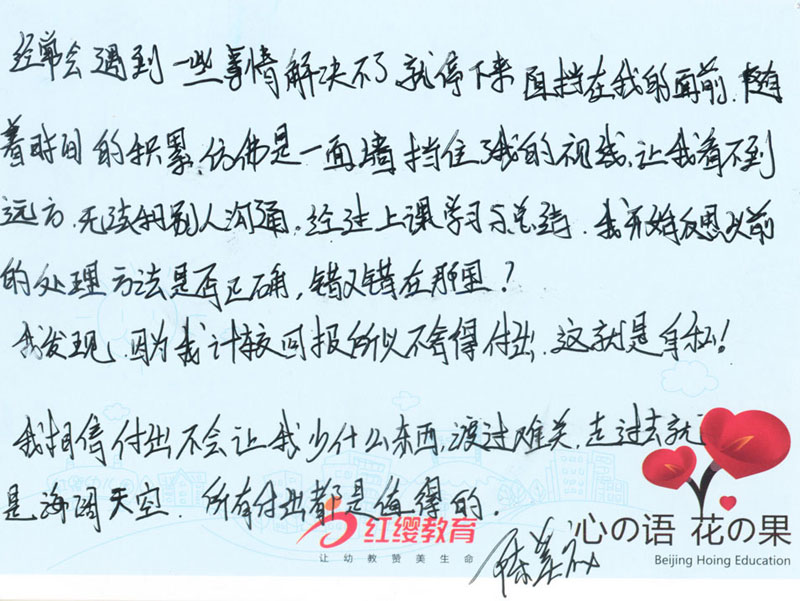 经常会遇到一些事情解决不了就停下来阻挡在我的面前.随
着时间的积累,仿佛是一面墙挡住了我的视线,让我看不到
远方.无法和别人沟通。经过上课学习与总结.我开始反思以前
的处理方法是否正确,错又错在那里?
我发现.因为我计较回报所以不舍得付出.这就是自私!
我相信付出不会让我少什么东西,渡过难关,走过去就
是海阔天空.所有付出都是值得的.
红缨教育
让幼教赞美生命
心の语 花の果
Beijing Hoing Education